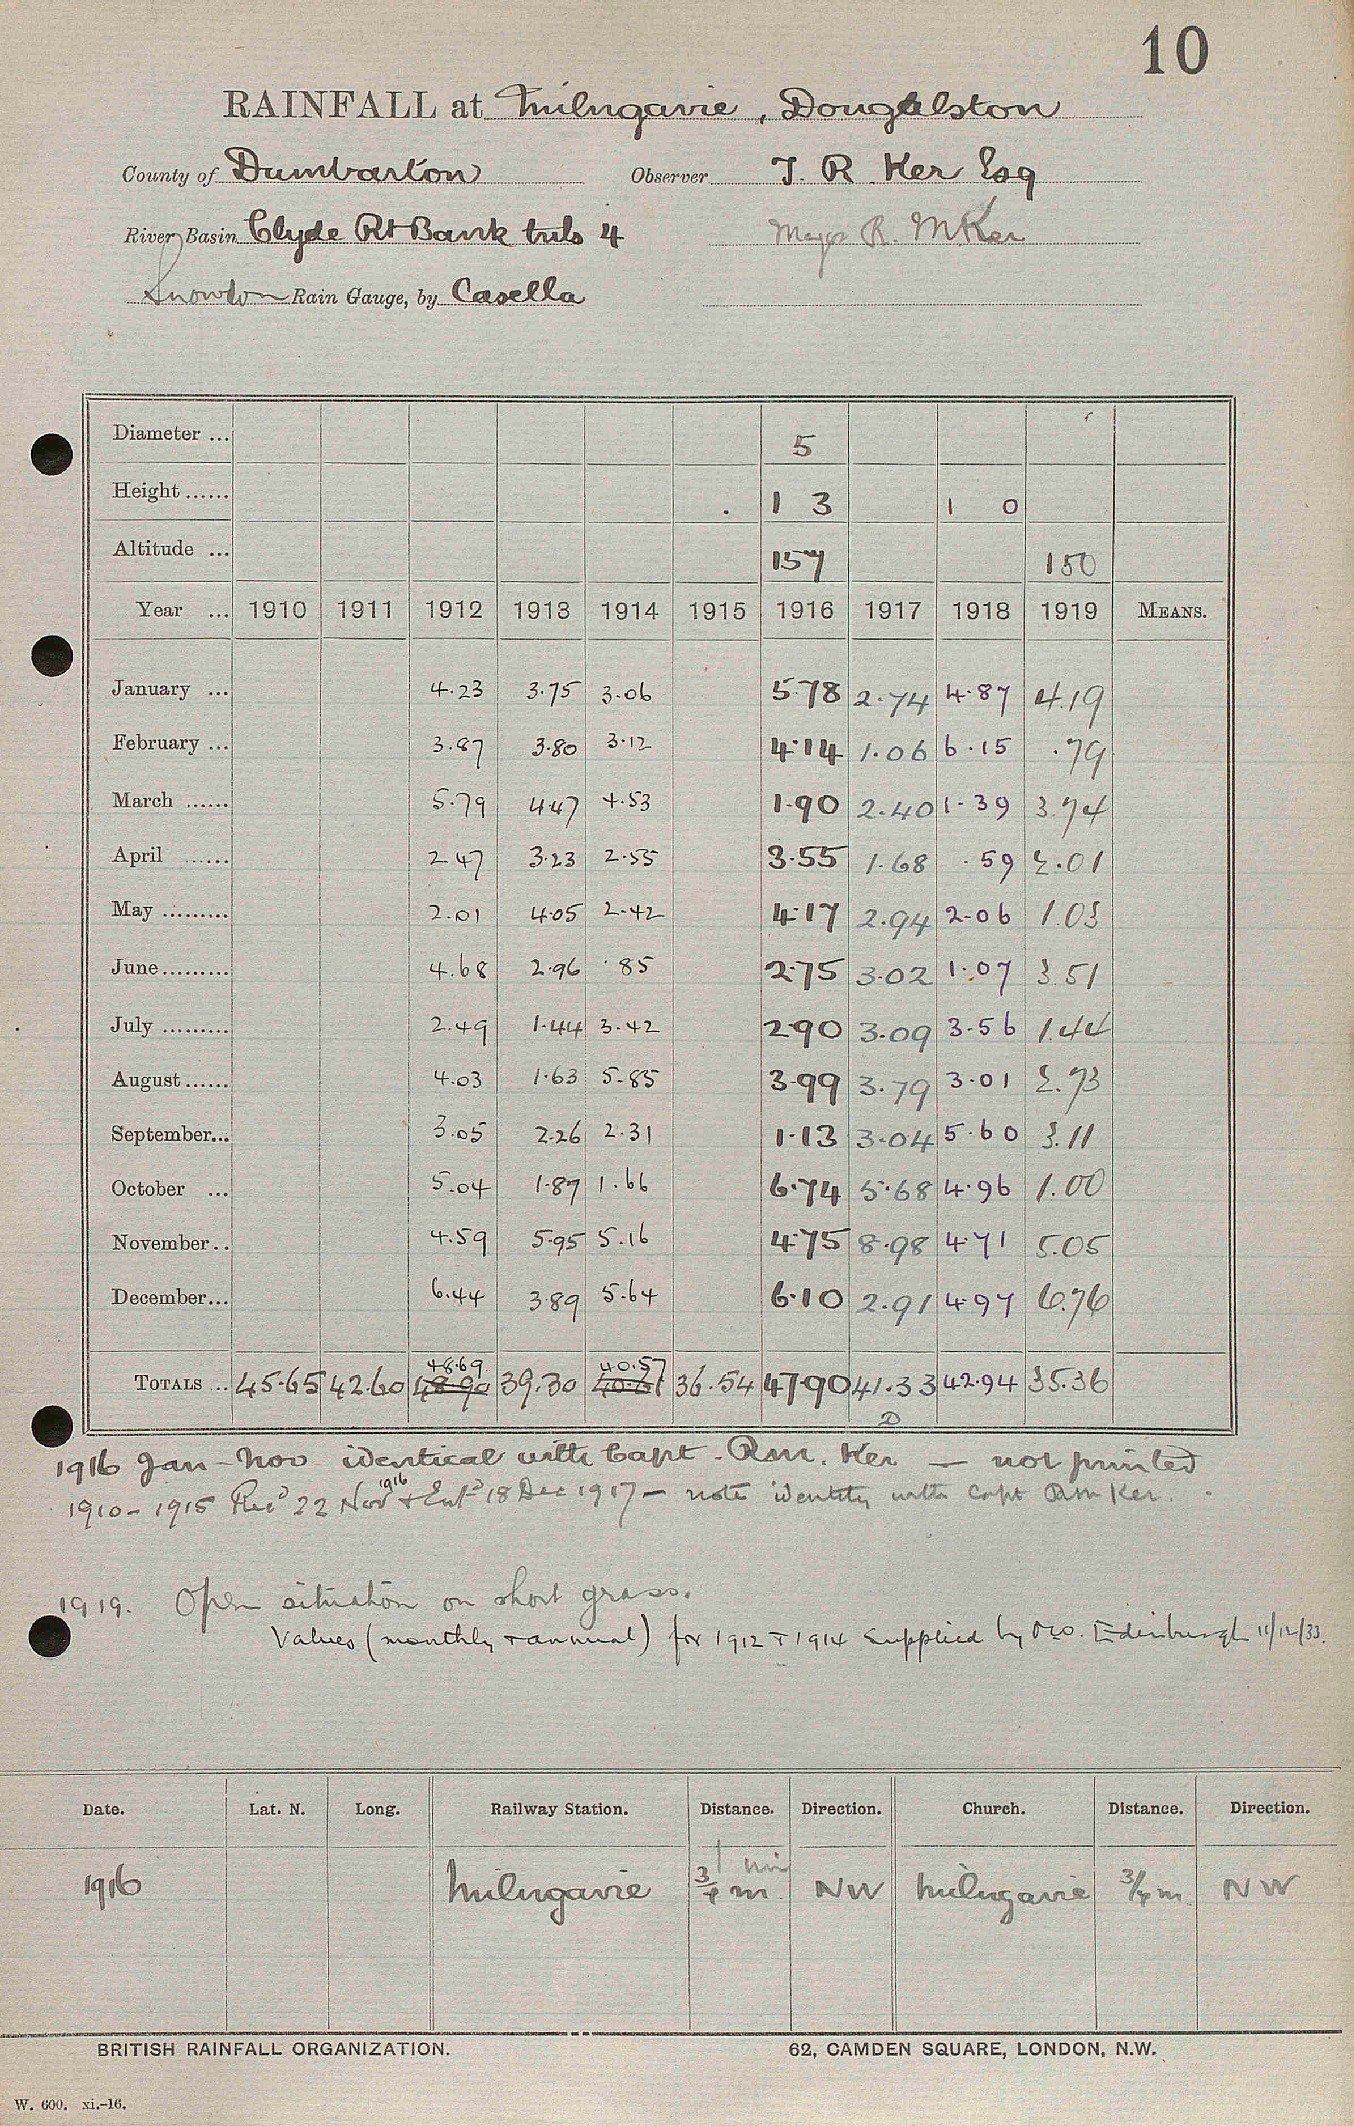 10
RAINFALL at Milngavie, Dougalston
County of Dumbarton Observer T. R Ker Esq
River Basin Clyde Rt Bank tribs 4 Major R. M Ker
Snowdon Rain Gauge, by Casella
Diameter ... 5
Height ...... 1 3 1 0
Altitude ... 157 150
Year ... 1910 1911 1912 1913 1914 1915 1916 1917 1918 1919 MEANS.
January ... 4.23 3.75 3.06 5.78 2.74 4.87 4.19
February ... 3.87 3.80 3.12 4.14 1.06 6.15 .79
March ...... 5.79 4.47 4.53 1.90 2.40 1.39 3.74
April ...... 2.47 3.23 2.55 3.55 1.68 .59 2.01
May ......... 2.01 4.05 2.42 4.17 2.94 2.06 1.03
June ......... 4.68 2.96 .85 2.75 3.02 1.07 3.51
July ......... 2.49 1.44 3.42 2.90 3.09 3.56 1.44
August ...... 4.03 1.63 5.85 3.99 3.79 3.01 2.73
September... 3.05 2.26 2.31 1.13 3.04 5.60 3.11
October ... 5.04 1.87 1.66 6.74 5.68 4.96 1.00
November.. 4.59 5.95 5.16 4.75 8.98 4.71 5.05
December... 6.44 3.89 5.64 6.10 2.91 4.97 6.76
48.69 40.57
TOTALS ... 45.65 42.60 48.90 39.30 40.61 36.54 47.90 41.33 42.94 35.36
D
1916 Jan - Nov identical with Capt. R.M. Ker — not printed
1910 - 1915 Recd 22 Nov 1916 & Entd 18 Dec 1917 - note identity with Capt R M Ker.
1919. Open situation on short grass.
Values (monthly & annual) for 1912 & 1914 supplied by M.O. Edinburgh 11/12/33.
Date. Lat. N. Long. Railway Station. Distance. Direction. Church. Distance. Direction.
1916 Milngavie 3/4 m. NW Milngavie 3/4 m. NW
BRITISH RAINFALL ORGANIZATION. 62, CAMDEN SQUARE, LONDON, N.W.
W. 600. xi.-16.